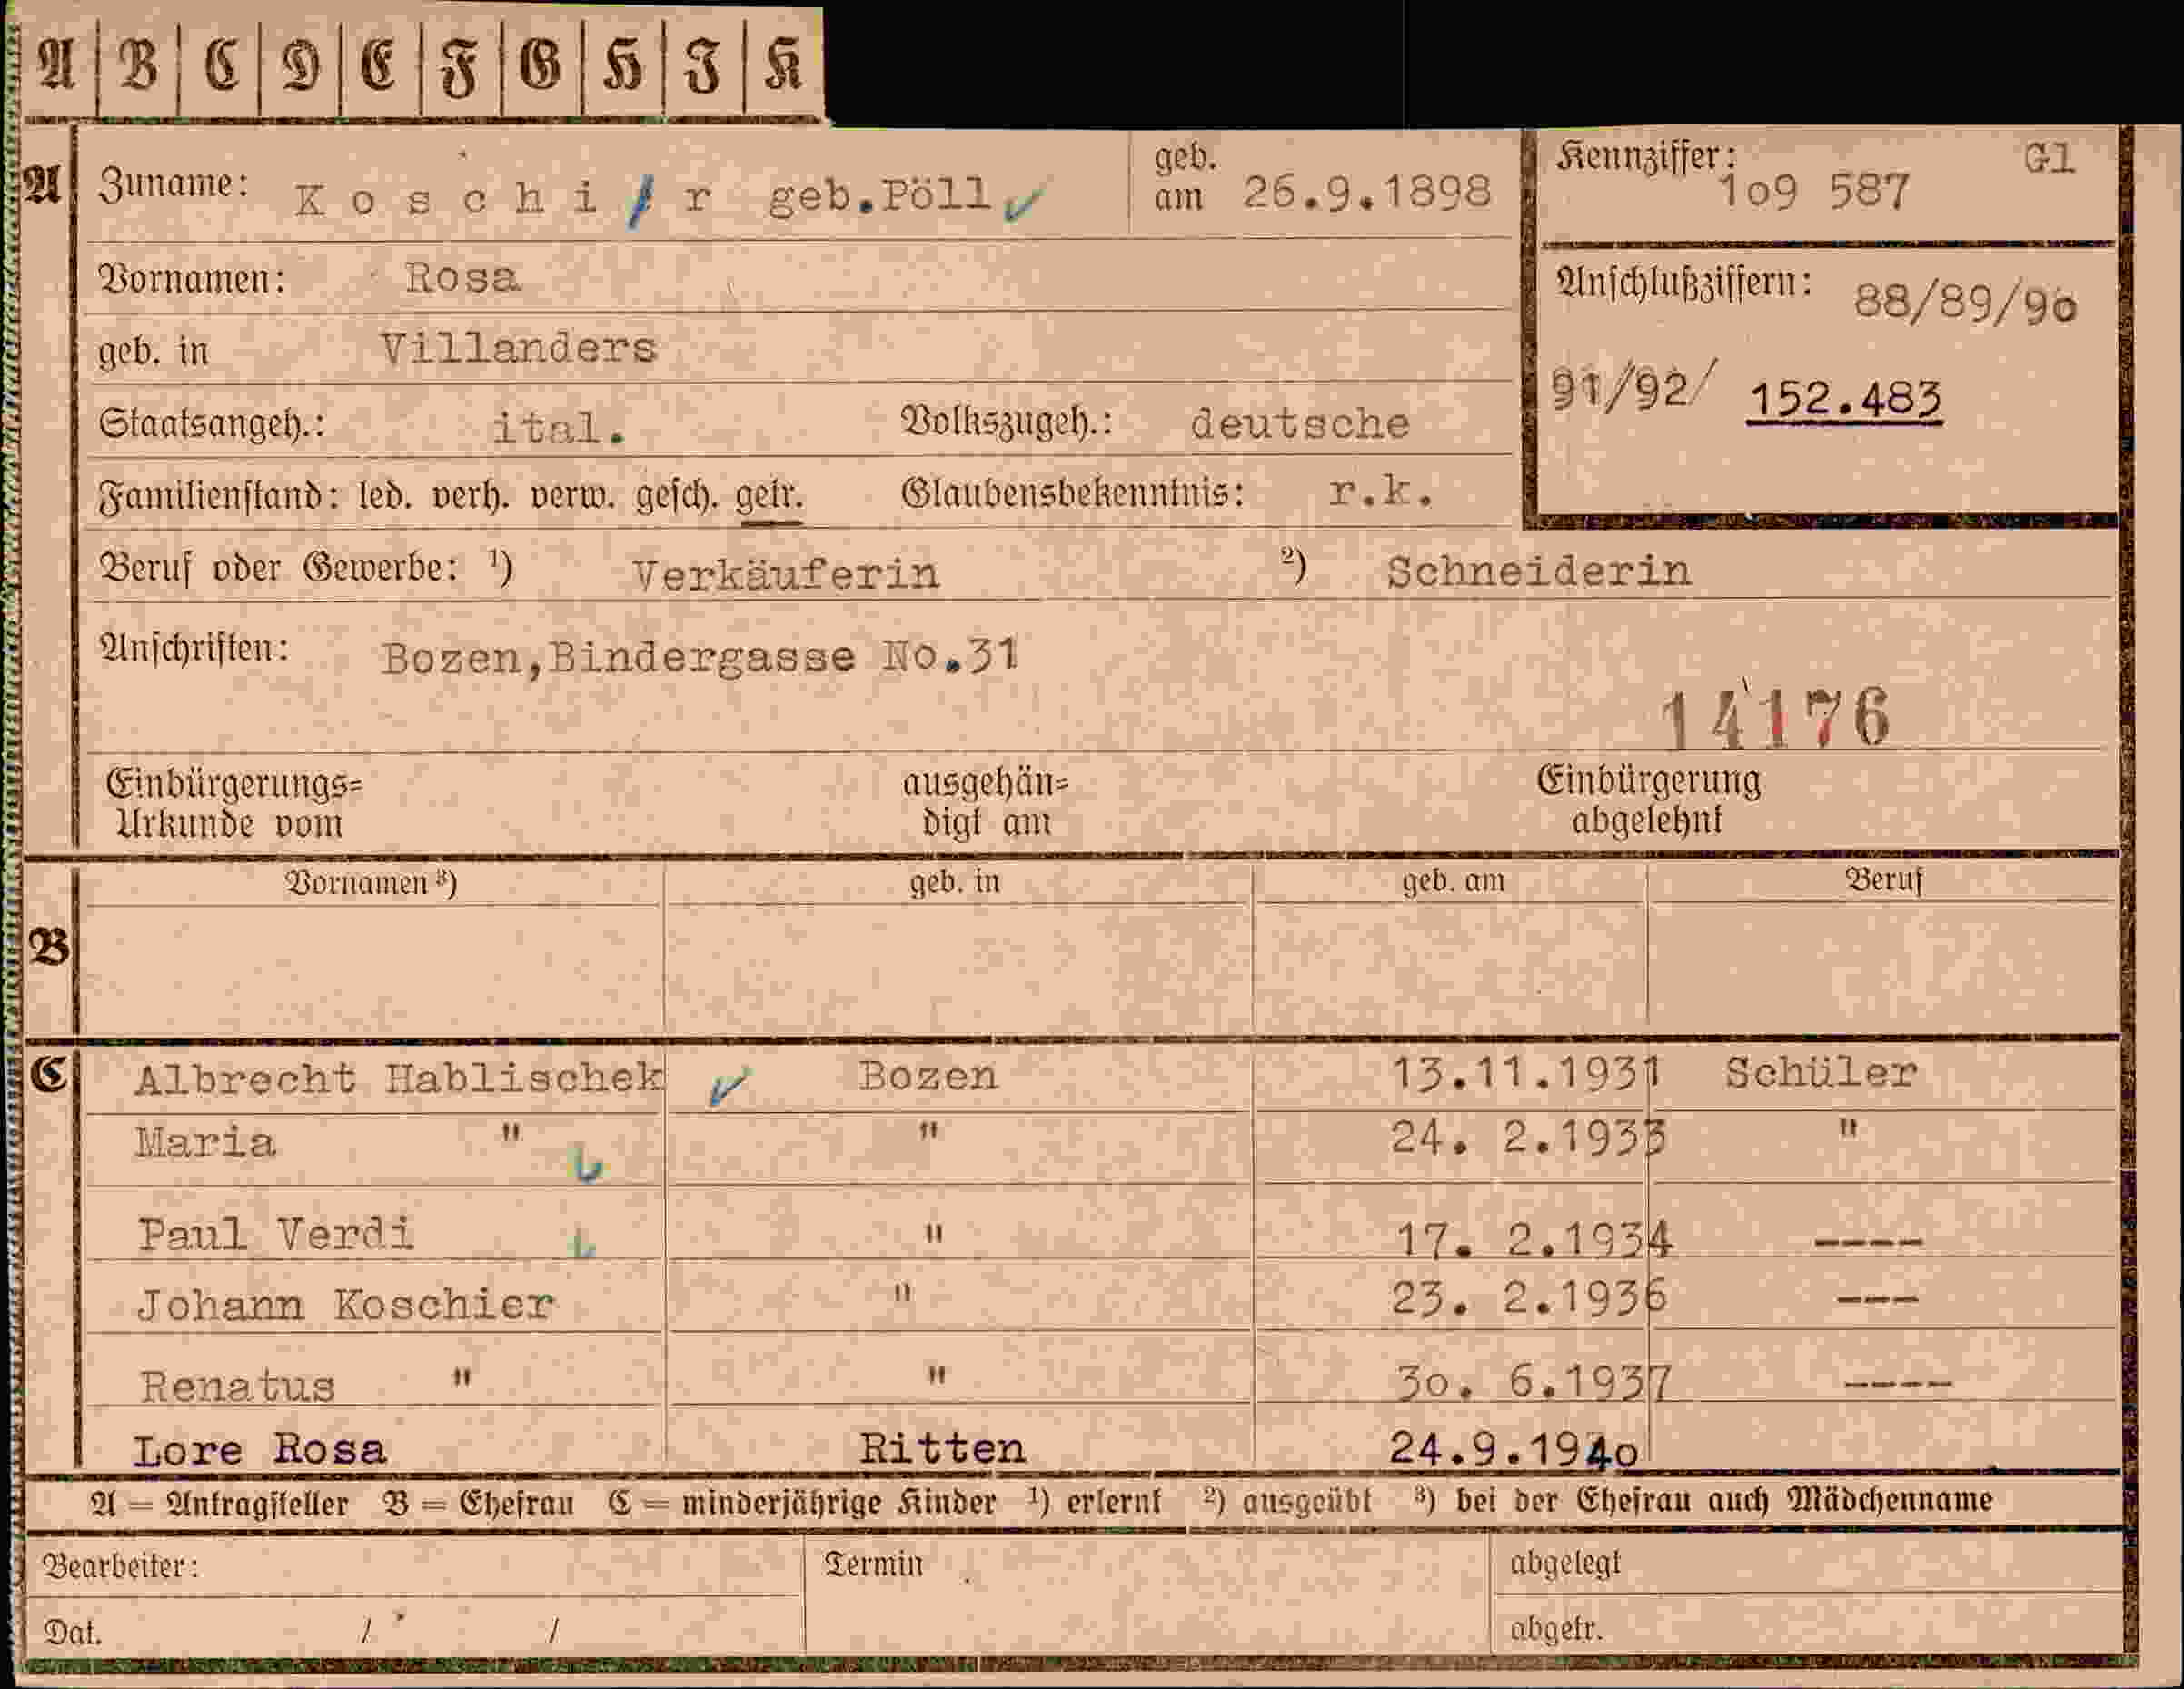 A B C D E F G H J K
A Zuname: K o s c h i r geb.Pöll geb. am 26.9.1898 Kennziffer: 1o9 587 Gl
Vornamen: Rosa Anschlußziffern: 88/89/9o
geb. in Villanders 91/92/ 152.483
Staatsangeh.: ital. Volkszugeh.: deutsche
Familienstand: led. verh. verw. gesch. getr. Glaubensbekenntnis: r.k.
Beruf oder Gewerbe: 1) Verkäuferin 2) Schneiderin
Anschriften: Bozen,Bindergasse No.31
14176
Einbürgerungs= ausgehän= Einbürgerung
Urkunde vom digt am abgelehnt
Vornamen 3) geb. in geb. am Beruf
B
C Albrecht Hablischek Bozen 13.11.1931 Schüler
Maria " " 24. 2.1933 "
Paul Verdi " 17. 2.1934 ----
Johann Koschier " 23. 2.1936 ---
Renatus " " 3o. 6.1937 ----
Lore Rosa Ritten 24.9.194o
A = Antragsteller B = Ehefrau C = minderjährige Kinder 1) erlernt 2) ausgeübt 3) bei der Ehefrau auch Mädchenname
Bearbeiter: Termin abgelegt
Dat. / / abgetr.